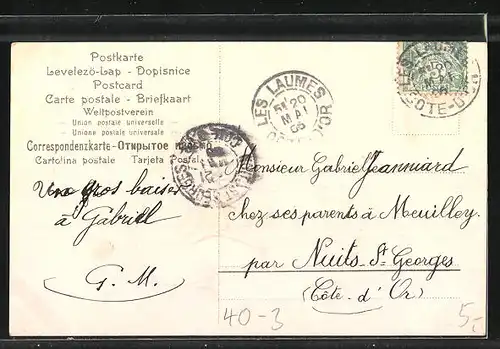 Postkarte
Levelezö-Lap - Dopisnice
Postcard
Carte postale - Briefkaart
Weltpostverein
Union postale universelle
Unione postale universale
Correspondenzkarte-Открытое письмо
Cartolina postale Tarjeta Postal
LES LAUMES
20
MAI
05
COTE-D'OR
Un gros baiser
à Gabriel
G. M.
Monsieur Gabriel Jeanniard
chez ses parents à Meuilley
par Nuits-St-Georges
(Côte d'Or)
40-3
5,-